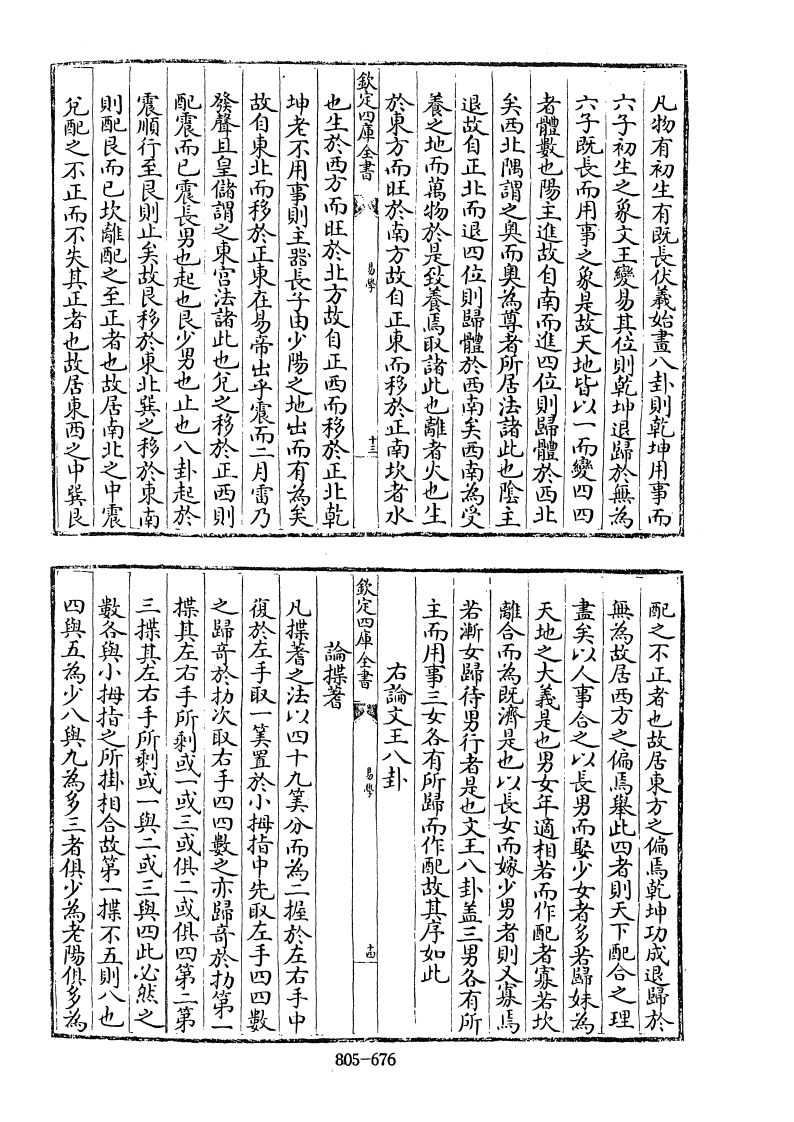 凡物有初生有既長伏羲始畫八卦則乾坤用事而
六子初生之象文王變易其位則乾坤退歸於無為
六子既長而用事之象是故天地皆以一而變四四
者體數也陽主進故自南而進四位則歸體於西北
矣西北隅謂之奥而奥為尊者所居法諸此也陰主
退故自正北而退四位則歸體於西南矣西南為受
養之地而萬物於是致養焉取諸此也離者火也生
於東方而旺於南方故自正東而移於正南坎者水
欽定四庫全書
易學
十三
也生於西方而旺於北方故自正西而移於正北乾
坤老不用事則主器長子由少陽之地出而有為矣
故自東北而移於正東在易帝出乎震而二月雷乃
發聲且皇儲謂之東宮法諸此也兌之移於正西則
配震而已震長男也起也艮少男也止也八卦起於
震順行至艮則止矣故艮移於東北巽之移於東南
則配艮而已坎離配之至正者也故居南北之中震
兌配之不正而不失其正者也故居東西之中巽艮
配之不正者也故居東方之偏焉乾坤功成退歸於
無為故居西方之偏焉舉此四者則天下配合之理
盡矣以人事合之以長男而娶少女者多若歸妹為
天地之大義是也男女年適相若而作配者寡若坎
離合而為既濟是也以長女而嫁少男者則又寡焉
若漸女歸待男行者是也文王八卦蓋三男各有所
主而用事三女各有所歸而作配故其序如此
右論文王八卦
欽定四庫全書
易學
十四
論揲蓍
凡揲蓍之法以四十九筭分而為二握於左右手中
復於左手取一筭置於小拇指中先取左手四四數
之歸奇於扐次取右手四四數之亦歸奇於扐第一
揲其左右手所剩或一或三或俱二或俱四第二第
三揲其左右手所剩或一與二或三與四此必然之
數各與小拇指之所掛相合故第一揲不五則八也
四與五為少八與九為多三者俱少為老陽俱多為
805-676